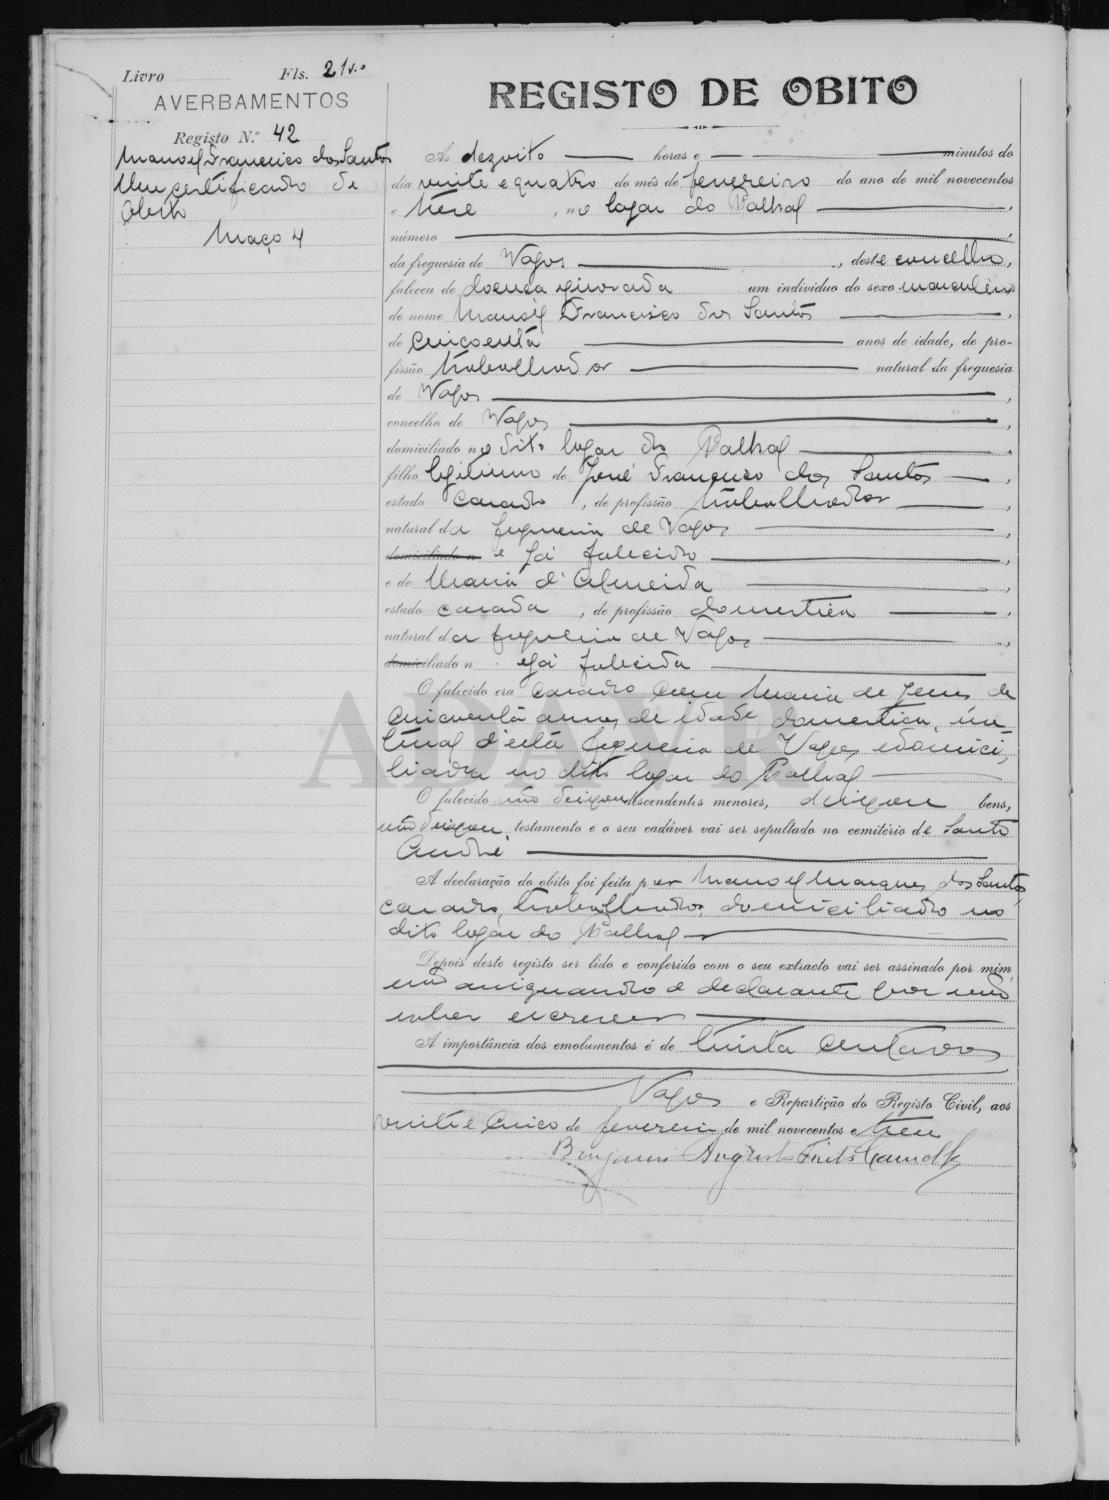 Livro Fls. 21v.o
AVERBAMENTOS
Registo N.º 42
Manoel Francisco dos Santos
Um certificado de
Obito
Maço 4
REGISTO DE OBITO
Ás dezoito horas e minutos do
dia vinte e quatro do mês de fevereiro do ano de mil novecentos
e treze, no logar do Palhal,
número
da freguesia de Vagos, deste concelho,
faleceu de doença ignorada um individuo do sexo masculino
de nome Manoel Francisco dos Santos,
de cincoenta anos de idade, de pro-
fissão trabalhador natural da freguesia
de Vagos,
concelho de Vagos,
domiciliado no dito logar do Palhal,
filho legitimo de José Francisco dos Santos,
estado casado, de profissão trabalhador,
natural da freguesia de Vagos,
domiciliado n e já falecido,
e de Maria d'Almeida,
estado casada, de profissão domestica,
natural da freguesia de Vagos,
domiciliado n e já falecida
O falecido era casado com Maria de Jesus de
cincoenta annos de idade domestica, na-
tural d'esta freguesia de Vagos, e domici-
liada no dito logar do Palhal
O falecido não deixou descendentes menores, deixou bens,
não deixou testamento e o seu cadáver vai ser sepultado no cemitério de Santo
André
A declaração do obito foi feita por Manoel Marques dos Santos,
casado, trabalhador, domiciliado no
dito logar do Palhal
Depois deste registo ser lido e conferido com o seu extracto vai ser assinado por mim,
não assignando o declarante por não
saber escrever
A importância dos emolumentos é de trinta centavos
Vagos e Repartição do Registo Civil, aos
vinte e cinco de fevereiro de mil novecentos e treze
Benjamim Augusto
ADAVR